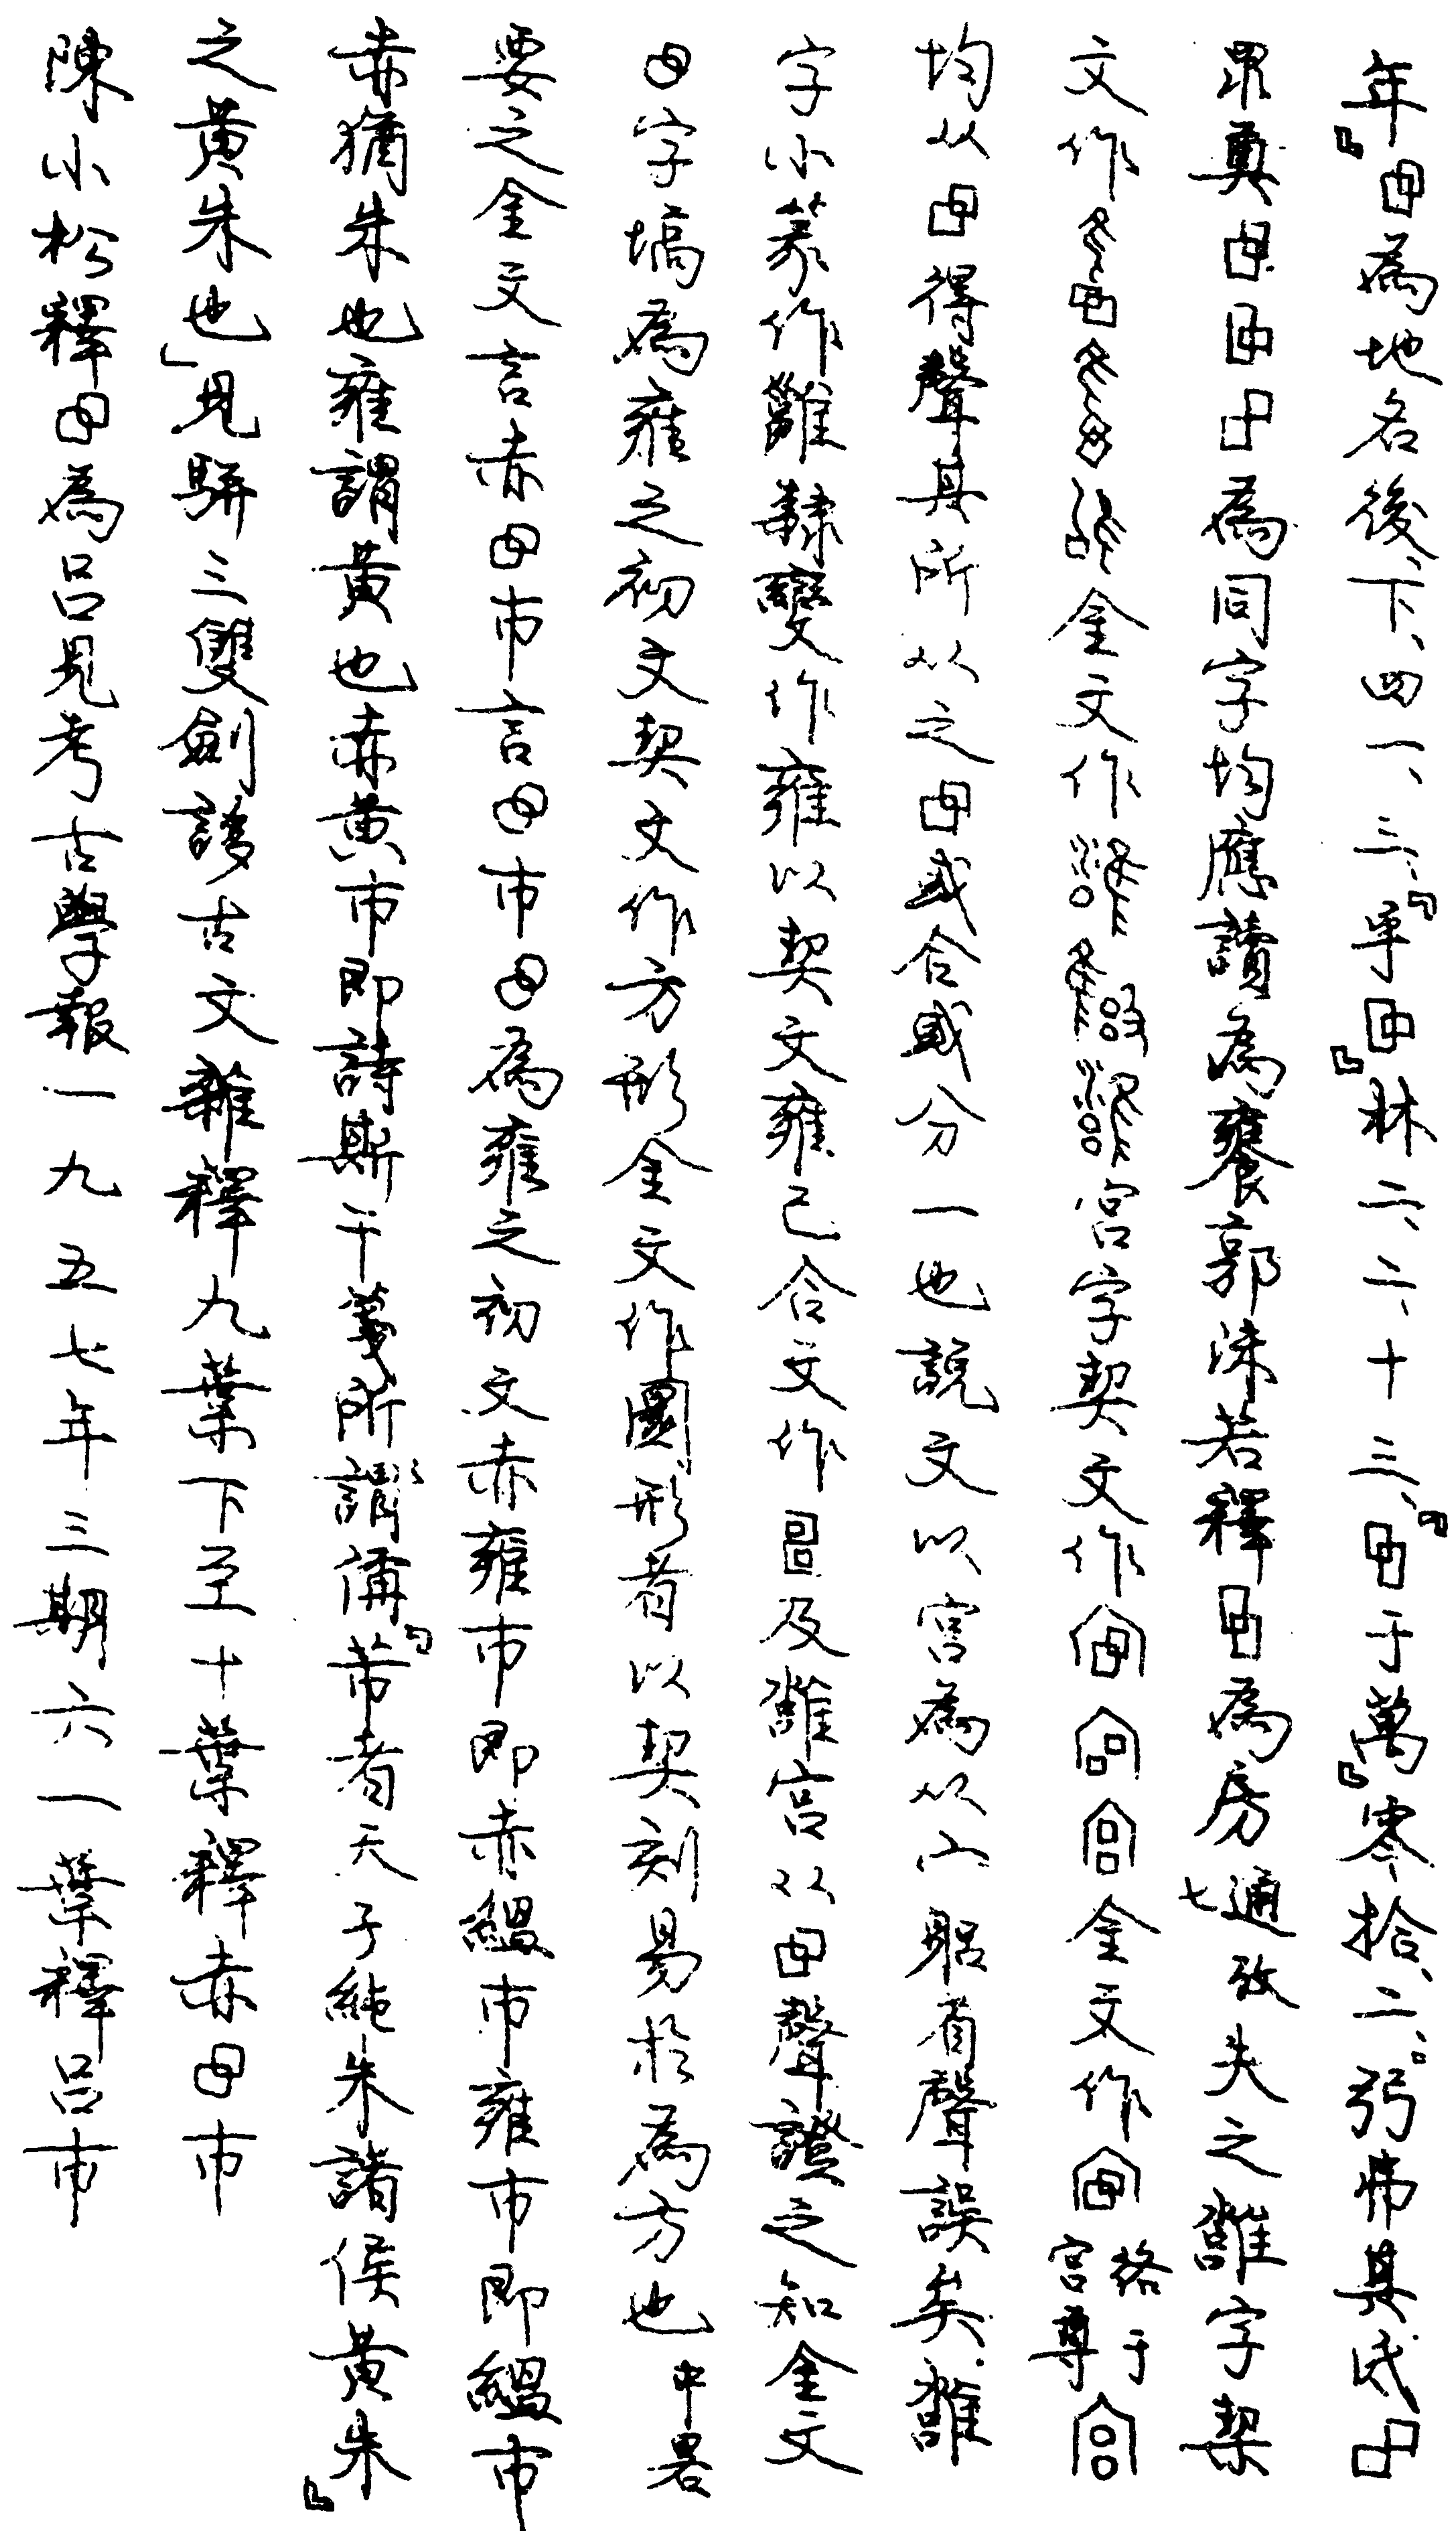 年』為地名後、下、四一、三、『乎』林二、二、十三、『于萬』零拾、二、弜帇其氐
眔奠為同字均應讀為饔郭沫若釋為房通七攷失之雝字契
文作金文作宮字契文作金文作宮尊格于
均从得聲其所从之或合或分一也說文以宮為从宀躳省聲誤矣雝
字小篆作雝隸變作雍以契文雍己合文作及雝宮从聲證之知金文
字塙為雍之初文契文作方形金文作圜形者以契刻易於為方也中畧
要之金文言赤市言市為雍之初文赤雍市即赤縕市雍市即縕市
赤猶朱也雍謂黃也赤黃市即詩斯干箋所謂『芾者天子純朱諸侯黃朱』
之黃朱也」見駢三雙劍誃古文雜釋九葉下至十葉釋赤市
陳小松釋為呂見考古學報一九五七年三期六一葉釋呂市